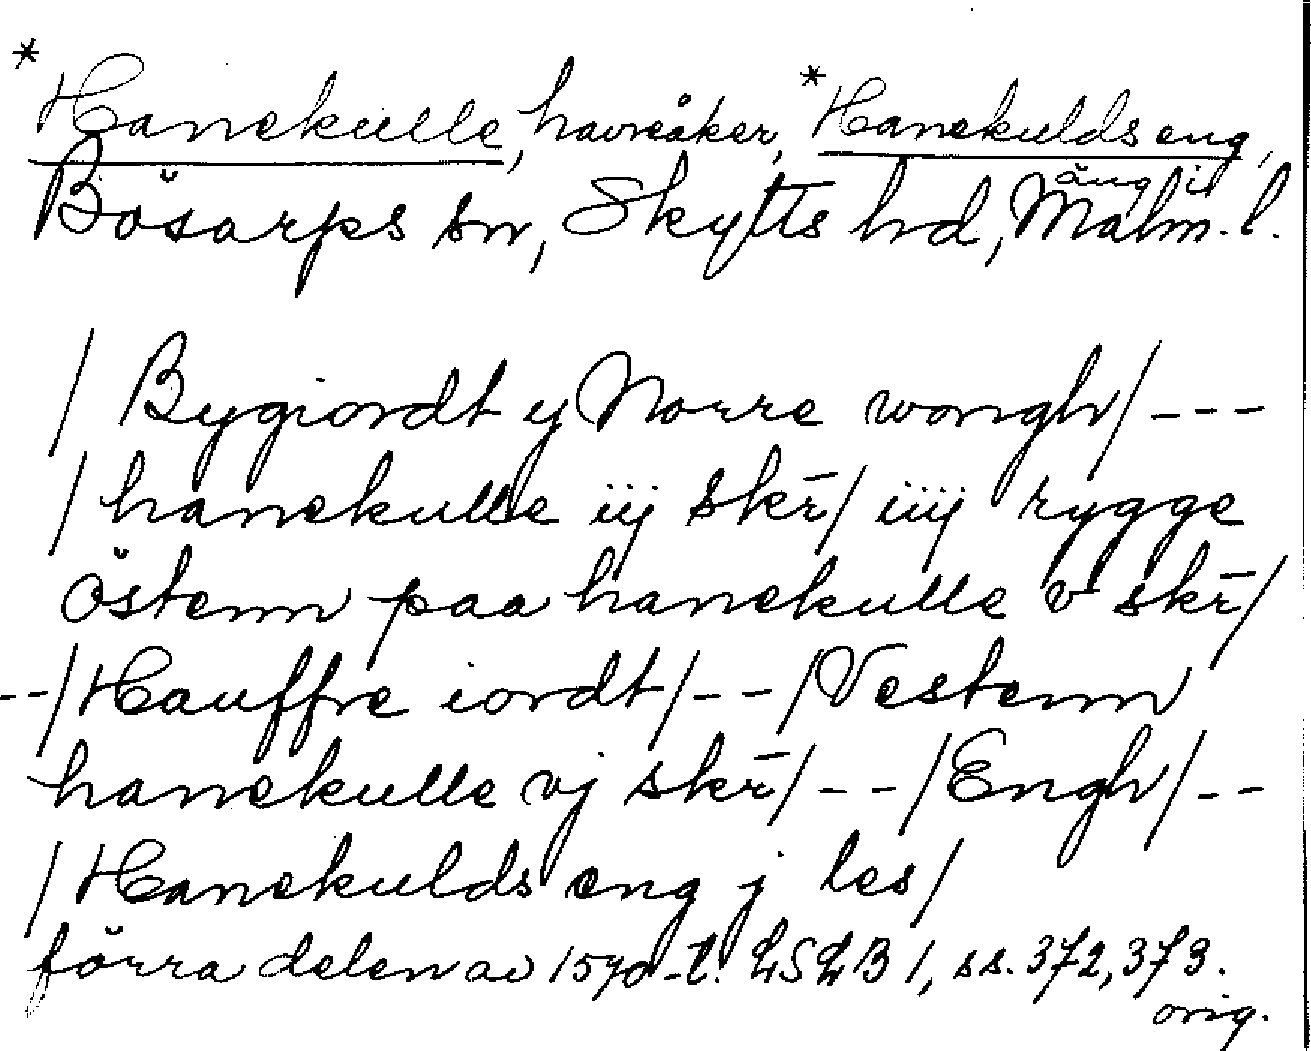 *Hanekulle, havreåker, *Hanekulds eng,
äng i
Bösarps sn, Skytts hd, Malm. l.
/ Bygiordt y Norre wongh/ ---
/ hanekulle iij skr̄/ iiij rygge
östenn paa hanekulle v skr̄/
--/Hauffre iordt/--/Vestenn
hanekulle vj skr̄/ --/Engh/--
/Hanekulds eng j les/
förra delen av 1570-t. LSLB 1, ss. 372, 373.
orig.